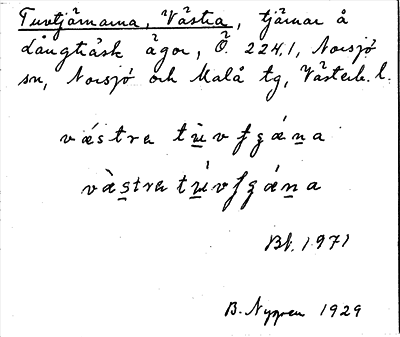 Tuvtjärnarna, Västra, tjärnar å
Långträsk ägor, Ö. 224,1, Norsjö
sn, Norsjö och Malå tg, Västerb. l.
västra
västra
Bl. 1971
B. Nygren 1929